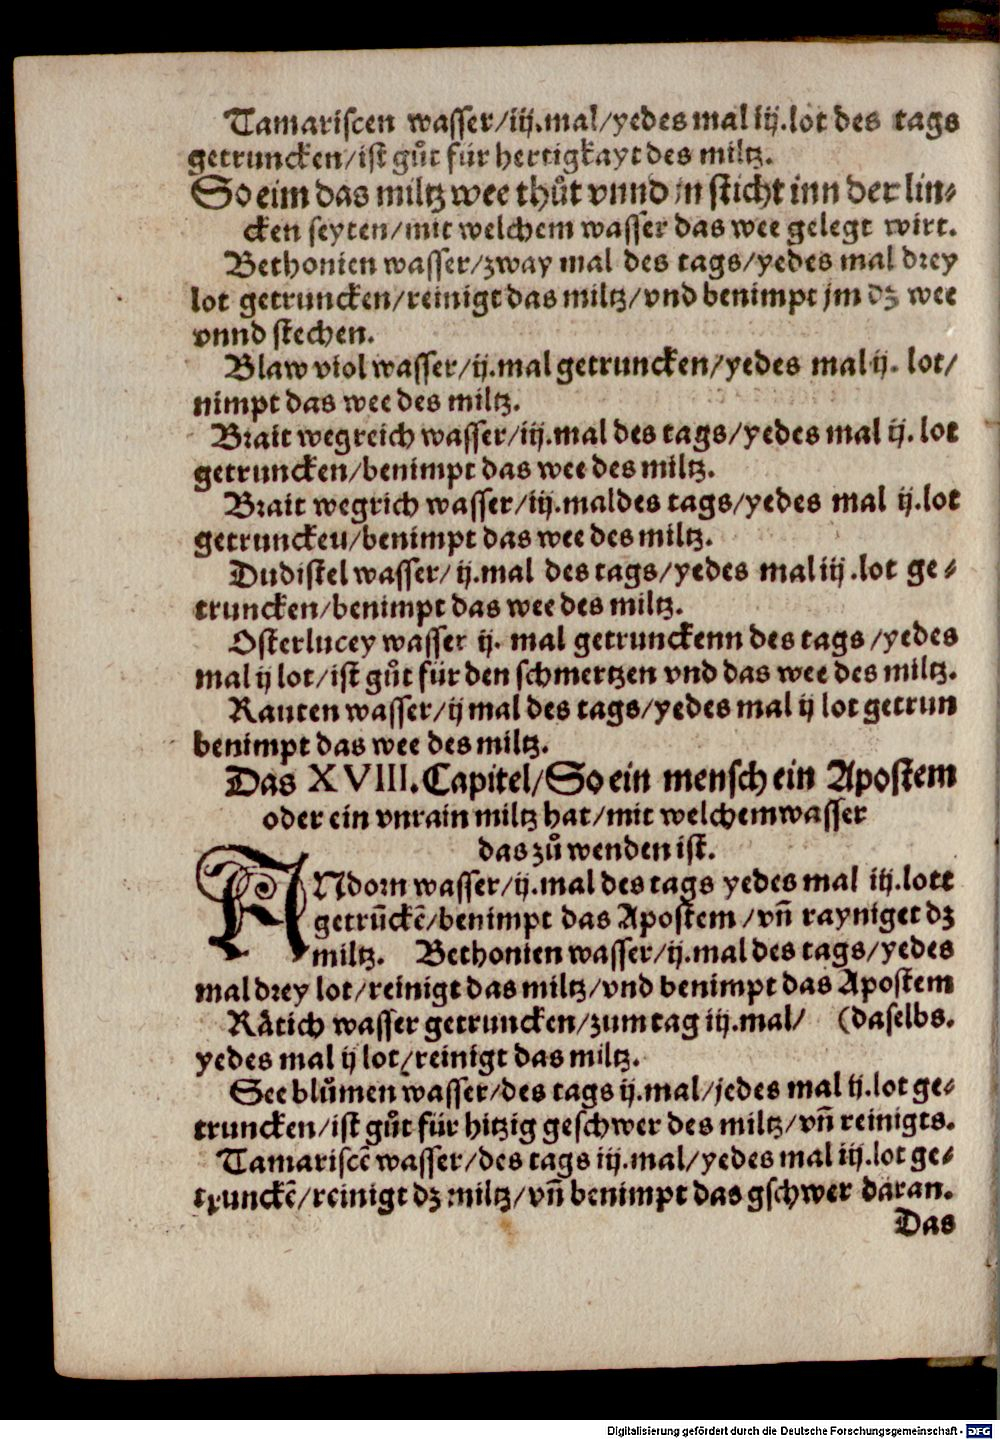 Tamariscen wasser/iij.mal/yedes mal iij.lot des tags
getruncken/ist gůt für hertigkayt des miltz.
So eim das miltz wee thůt vnnd jn sticht inn der lin-
cken seyten/mit welchem wasser das wee gelegt wirt.
Bethonien wasser/zway mal des tags/yedes mal drey
lot getruncken/reinigt das miltz/vnd benimpt jm dz wee
vnnd stechen.
Blaw viol wasser/ij.mal getruncken/yedes mal ij. lot/
nimpt das wee des miltz.
Brait wegreich wasser/iij.mal des tags/yedes mal ij. lot
getruncken/benimpt das wee des miltz.
Brait wegrich wasser/iij.maldes tags/yedes mal ij.lot
getrunckeu/benimpt das wee des miltz.
Dudistel wasser/ ij.mal des tags/yedes mal iij .lot ge-
truncken/benimpt das wee des miltz.
Osterlucey wasser ij. mal getrunckenn des tags /yedes
mal ij lot/ist gůt für den schmertzen vnd das wee des miltz.
Rauten wasser/ij mal des tags/yedes mal ij lot getrun
benimpt das wee des miltz.
Das XVIII.Capitel/So ein mensch ein Apostem
oder ein vnrain miltz hat/mit welchem wasser
das zů wenden ist.
ANdorn wasser/ij.mal des tags yedes mal iij.lott
getrūckē/benimpt das Apostem /vñ rayniget dz
miltz. Bethonien wasser/ij.mal des tags/yedes
mal drey lot/reinigt das miltz/vnd benimpt das Apostem
Rätich wasser getruncken/zum tag iij.mal/ (daselbs.
yedes mal ij lot/reinigt das miltz.
See blůmen wasser/des tags ij.mal/jedes mal ij.lot ge-
truncken/ist gůt für hitzig geschwer des miltz/vñ reinigts.
Tamariscē wasser/des tags iij.mal/yedes mal iij.lot ge-
trunckē/reinigt dz miltz/vñ benimpt das gschwer daran.
Das
Digitalisierung gefördert durch die Deutsche Forschungsgemeinschaft - DFG